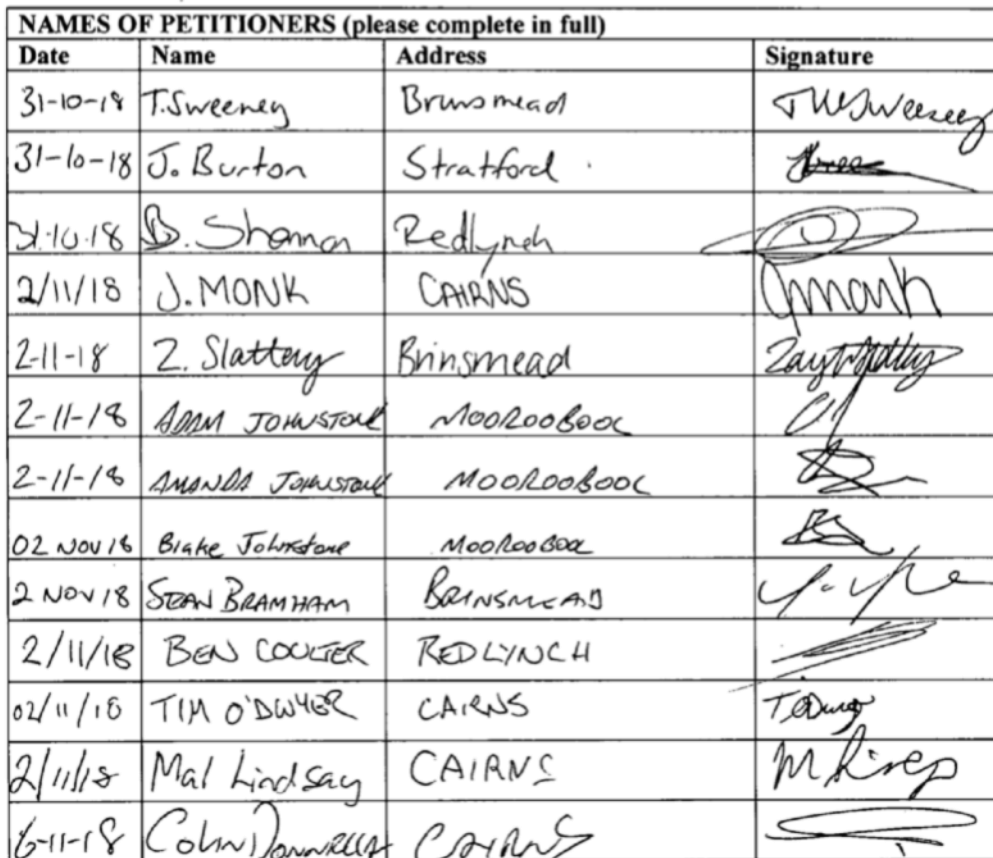 NAMES OF PETITIONERS (please complete in full)
Date Name Address Signature
31-10-18 T. Sweeney Brinsmead
31-10-18 J. Burton Stratford
31.10.18 B. Shannon Redlynch
2/11/18 J. MONK CAIRNS Jmonk
2-11-18 Z. Slattery Brinsmead
2-11-18 ADAM JOHNSTONE MOOROOBOOL
2-11-18 AMANDA JOHNSTONE MOOROOBOOL
02 NOV 18 Blake Johnstone MOOROOBOOL
2 NOV 18 SEAN BRAMHAM BRINSMEAD
2/11/18 BEN COULTER REDLYNCH
02/11/18 TIM O'DWYER CAIRNS
2/11/18 Mal Lindsay CAIRNS
6-11-18 Colin CAIRNS